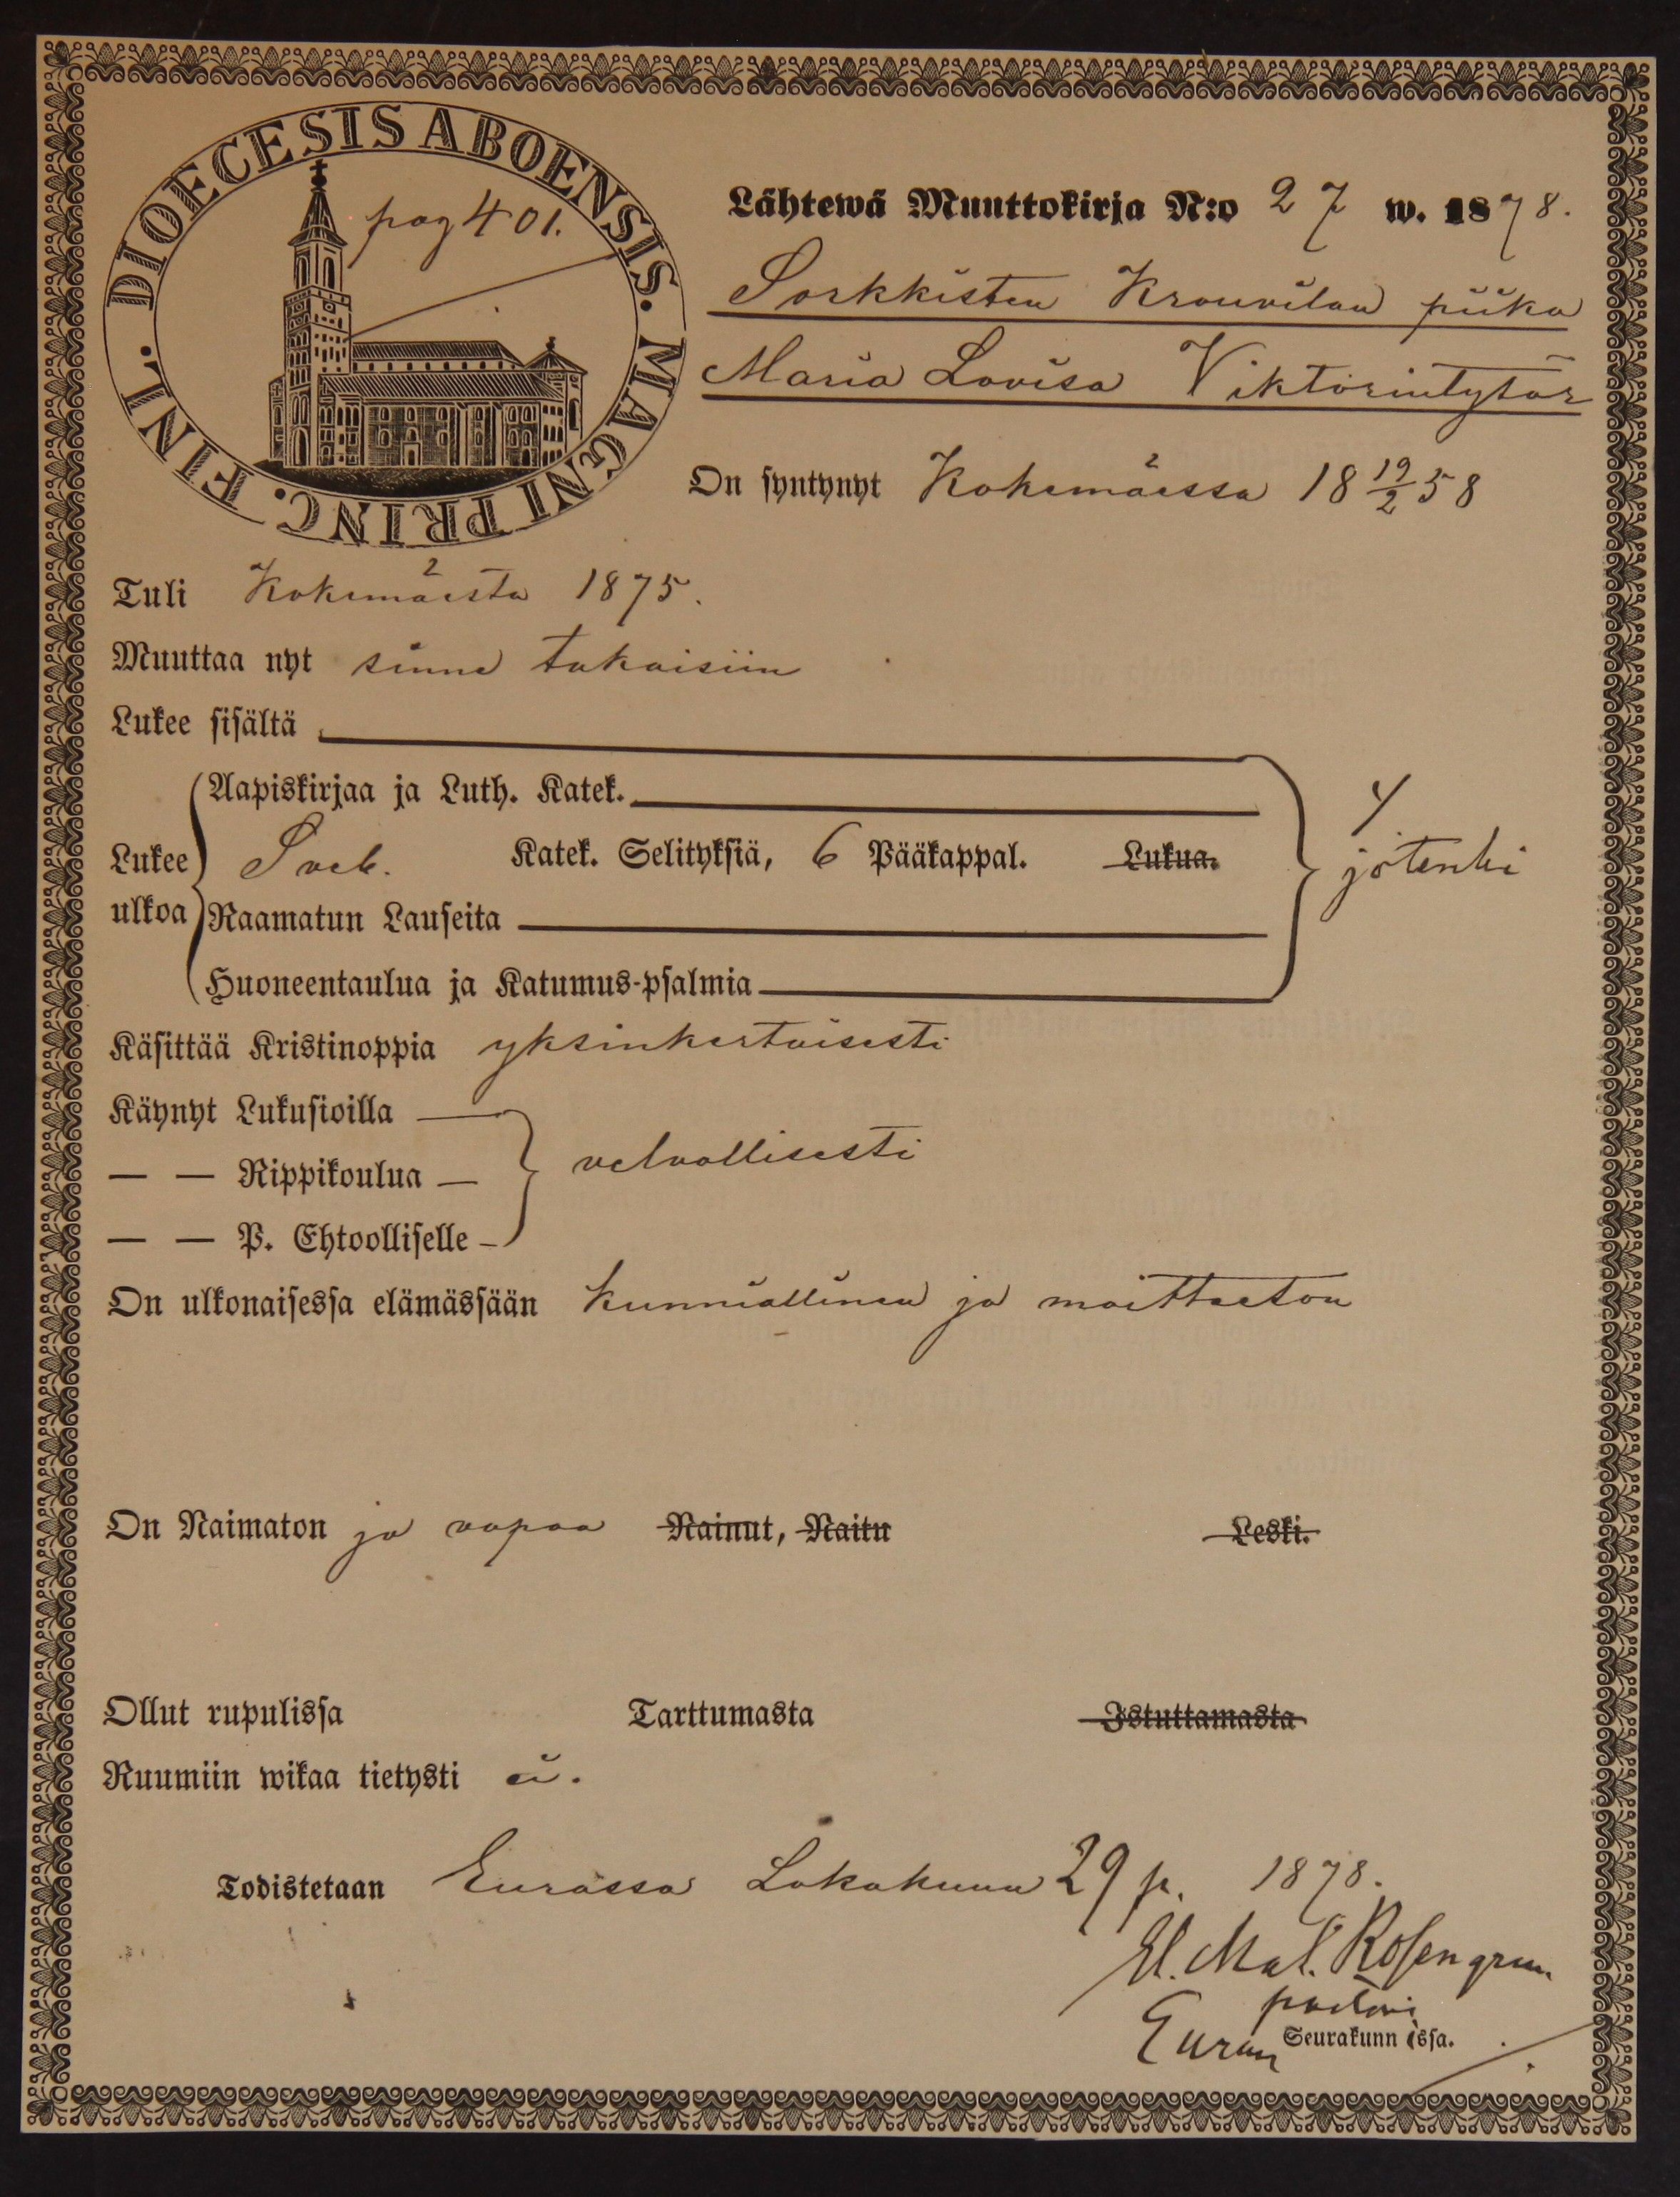 DIOECESIS ABOENSIS. MAGNI PRINC. FINL.
pag 401.
Lähtewä Muuttokirja N:o 27 w. 1878.
Sorkkisten Krouvilan piika
Maria Lovisa Viktorintytär
On syntynyt Kokemäessä 18 19/2 58
Tuli Kokemäestä 1875.
Muuttaa nyt sinne takaisiin
Lukee sisältä
Aapiskirjaa ja Luth. Katek.
Lukee ulkoa Sveb. Katek. Selityksiä, 6 Pääkappal. Lukua. jotenki
Raamatun Lauseita
Huoneentaulua ja Katumus-psalmia
Käsittää Kristinoppia yksinkertaisesti
Käynyt Lukusioilla
— — Rippikoulua — velvollisesti
— — P. Ehtoolliselle
On ulkonaisessa elämässään kunniallinen ja moitteeton
On Naimaton ja vapaa Nainut, Naitu Leski.
Ollut rupulissa Tarttumasta Istuttamasta
Ruumiin wikaa tietysti ei.
Todistetaan Eurassa Lokakuun 29 p. 1878.
Rosengren
pastori
Euran Seurakunnissa.